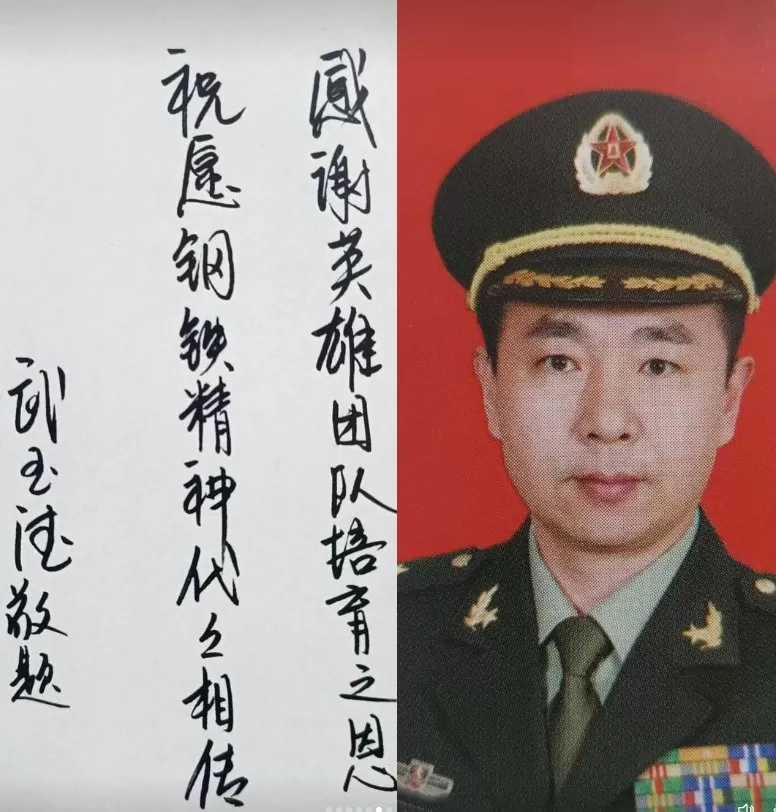 感谢英雄团队培育之恩
祝愿钢铁精神代々相传
武玉德敬题